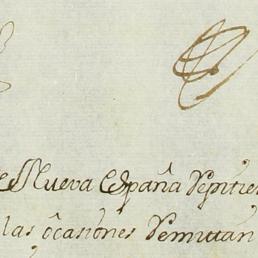 e Nueva España Septie
las ocasiones Se mutan